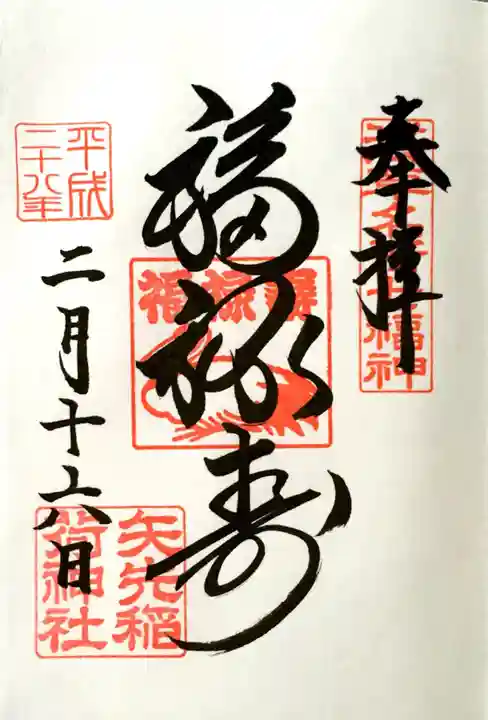 奉拝
福禄寿
福禄壽
平成
二十八年
二月十六日
矢先稲
荷神社